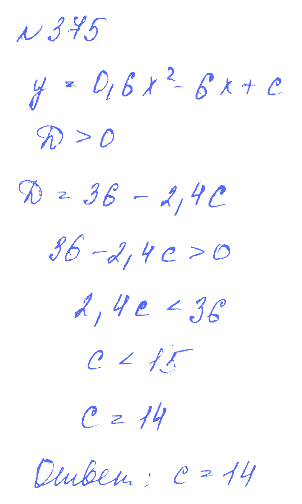 № 375
y = 0,6x² - 6x + c
D > 0
D = 36 - 2,4c
36 - 2,4c > 0
2,4c < 36
c < 15
c = 14
Ответ: c = 14